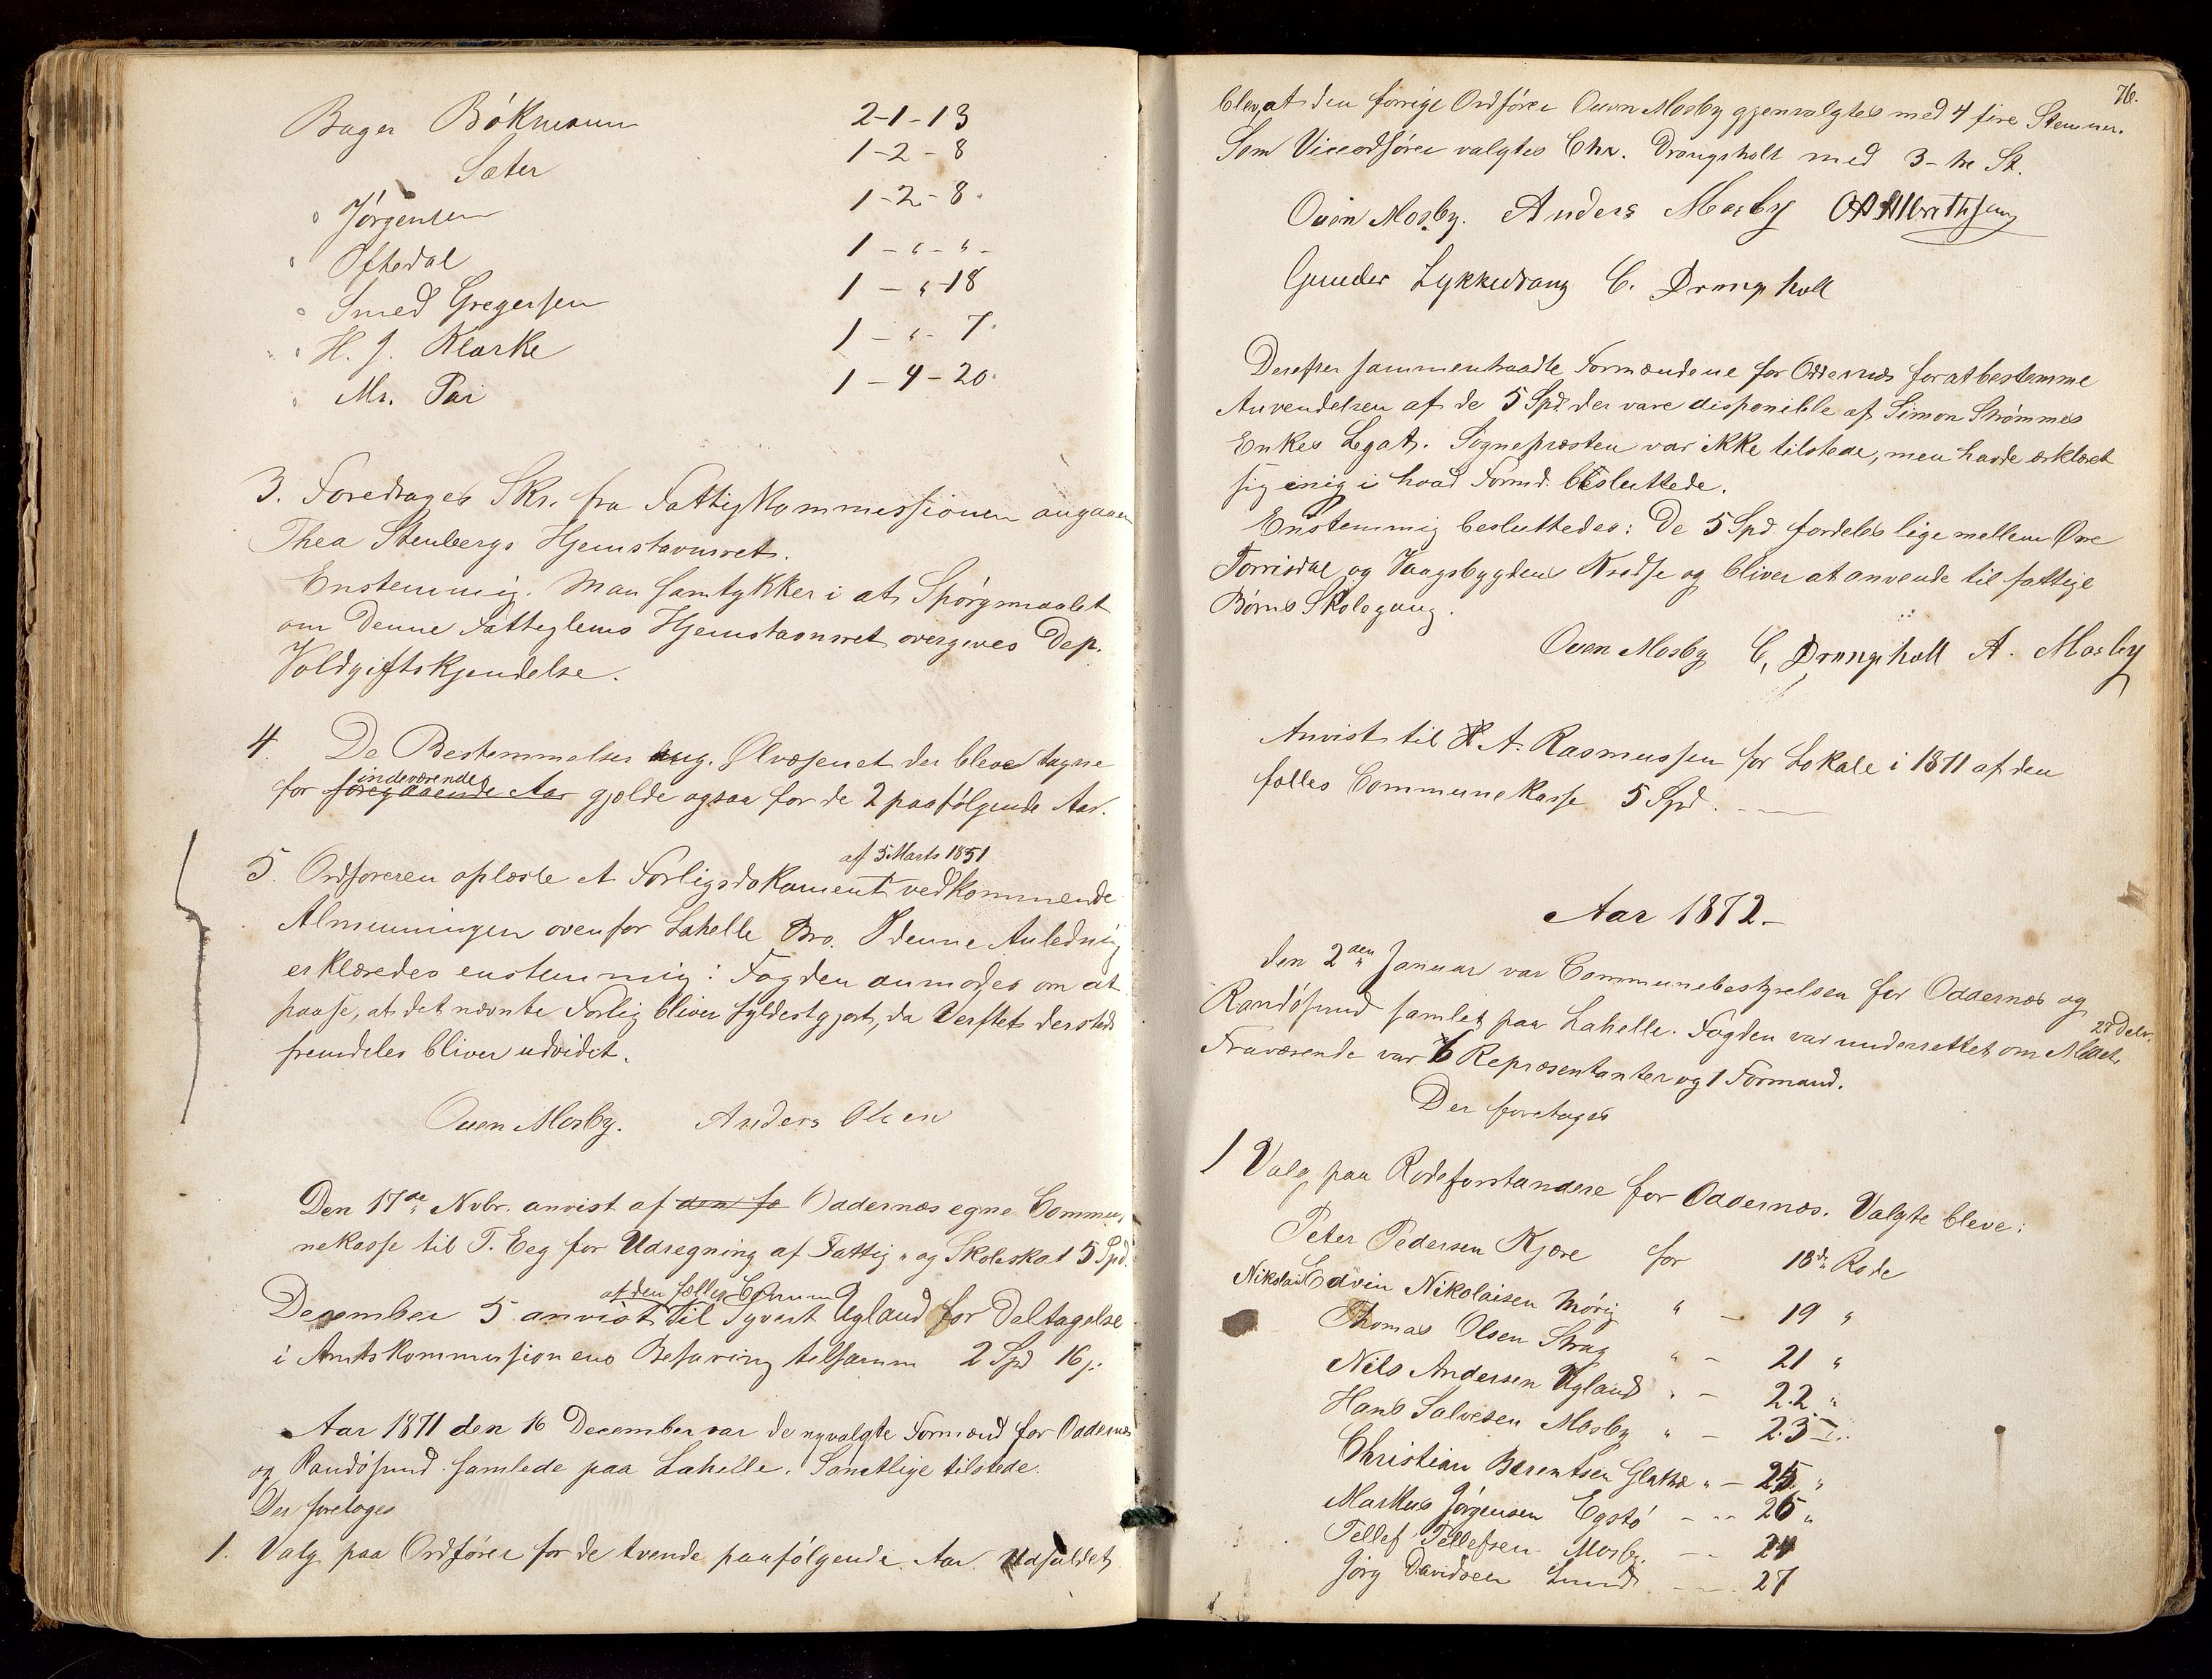 Bager Bökmann 2-1-13
Sæter 1-2-8
" Jörgensen 1-2-8
" Oftedal 1-"-"-
" Smed Gregersen 1-"-18
" H. J. Klarke 1-"-7
" Mr. Pai 1-4-20
3. Foredrages Skr. fra Fattigkommissionen angaaen
Thea Stenbergs Hjemstavnsret.
Enstemmig. Man samtykker i at Spörgsmaalet
om denne Fattiglems Hjemstavnsret overgives Dep.
Voldgiftskjendelse.
4. De Bestemmelser ang. Ølvæsenet der bleve tagne
for foregaaende Aar indeværende gjelde ogsaa for de 2 paafölgende Aar.
5. Ordföreren oplæste et Forligsdokument af 5 Marts 1851 vedkommende
Almenningen ovenfor Lahelle Bro. I denne Anledning
erklæredes enstemmig: Fogden anmodes om at
paase, at det nævnte Forlig bliver fyldestgjort, da Verftet dersteds
fremdeles bliver udvidet.
Ouen Mosby. Anders Olsen
Den 17de Nvbr. anvist af den fæ Oddernæs egne Commu-
nekasse til T. Eeg for Udregning af Fattig- og Skoleskat 5 Spd.
December 5 anvist af den fælles Comm til Syvert Ugland for Deltagelse
i Amtskommissionens Befaring tilsamm 2 Spd 16 s.
Aar 1871 den 16 December var de nyvalgte Formænd for Oddernæs
og Randösund samlede paa Lahelle. Samtlige tilstede.
Der foretoges
1. Valg paa Ordförer for de tvende paafölgende Aar. Udfaldet
76.
blev, at den forrige Ordförer Ouen Mosby gjenvalgtes med 4 fire Stemmer.
Som Viceordförer valgtes Chr. Drangsholt med 3- tre St.
Ouen Mosby. Anders Mosby
Gunder Lykkedrang C. Drangsholt
Derefter sammentraadte Formændene for Oddernæs for at bestemme
Anvendelsen af de 5 Spd. der vare disponible af Simon Strömmes
Enkes Legat. Sognepræsten var ikke tilstede, men havde erklæret
sig enig i hvad Formd. besluttede.
Enstemmig besluttedes: De 5 Spd. fordeles lige mellem Øvre
Torrisdal og Vaagsbygdens Kredse og bliver at anvende til fattige
Börns Skolegang.
Ouen Mosby C. Drangsholt A. Mosby
Anvist til A. Rasmussen for Lokale i 1871 af den
fælles Communekasse 5 Spd.
Aar 1872-
den 2den Januar var Communebestyrelsen for Oddernæs og
Randösund samlet paa Lahelle. Fogden var underrettet om Mödet
Fraværende var 6 Repræsentanter og 1 Formand.
Der foretoges
1 Valg paa Rodeforstandere for Oddernæs. Valgte bleve:
Peter Pedersen Kjære for 18de Rode
Nikolai Edvin Nikolaisen Mörig " - 19 "
Thomas Olsen Stray " - 21 "
Nils Andersen Ugland " - 22 "
Hans Salvesen Mosby " - 23
Christian Berentsen Glattre " - 25 "
Markus Jörgensen Egstö - " 26 "
Tellef Tellefsen Mosby - 24
Jörg Davidsen Lund - 27